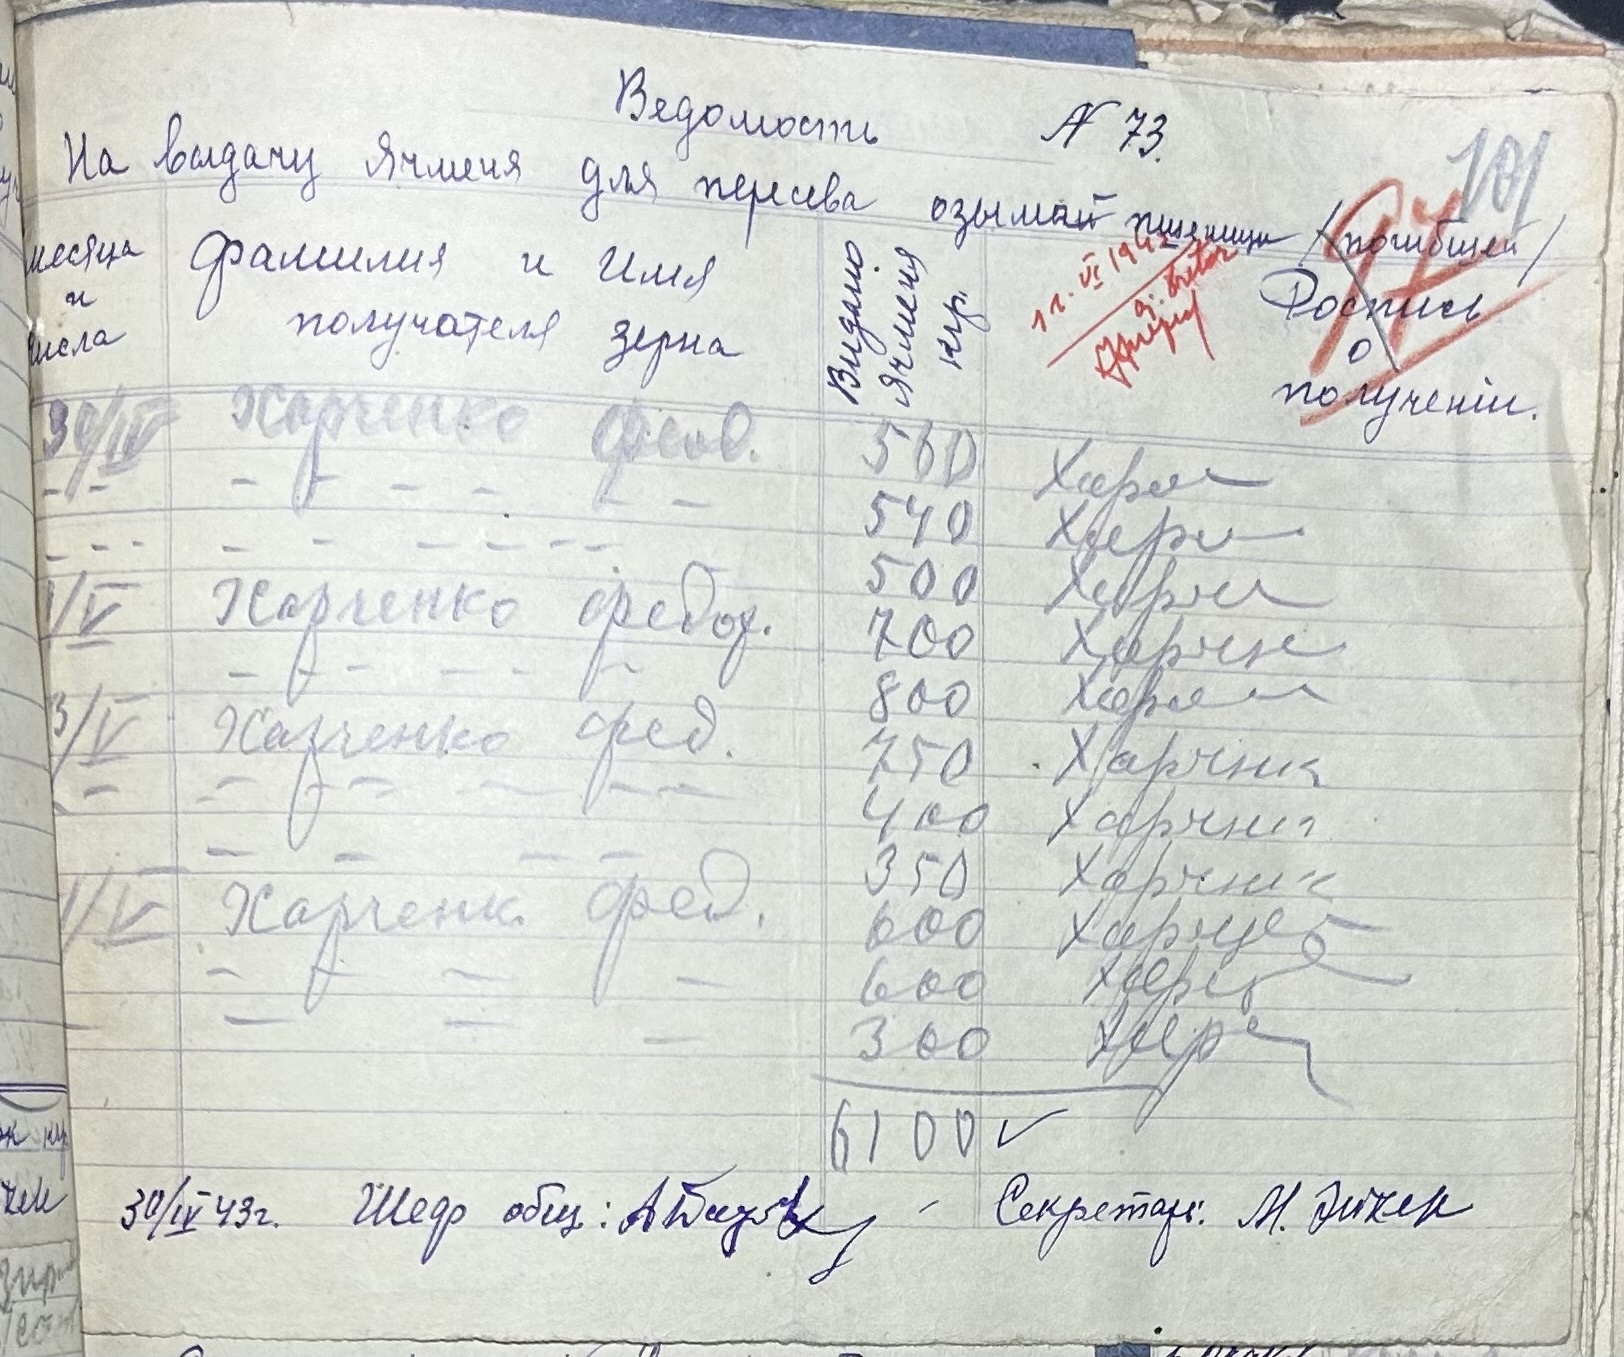 Ведомость N 73.
101
На выдачу Ячменя для пересева озымой пшеници /погибшей/
97
месяца и числа
Фамилия и Имя получателя зерна
Выдано Ячменя кгр.
Роспись о получении.
30/IV Харченко Феод. 560 Харч
- - - - - - - - 540 Харч
- - - - - - - - - 500 Харч
1/V Харченко Федор. 700 Харчен
- - - - - - 800 Харч
3/V Харченко Фед. 750 Харченк
- - - - - - - 400 Харчен
- - - - 350 Харченк
1/V Харченк. Фед. 600
- - - - 600
- - - 300 Хар
6100 ✓
30/IV 43г. Шедр общ: Секретарь: